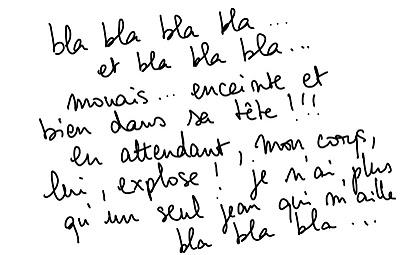 bla bla bla bla...
et bla bla bla...
mouais... enceinte et
bien dans sa tête !!!
en attendant, mon corps,
lui, explose ! je n'ai plus
qu'un seul jean qui m'aille
bla bla bla ...